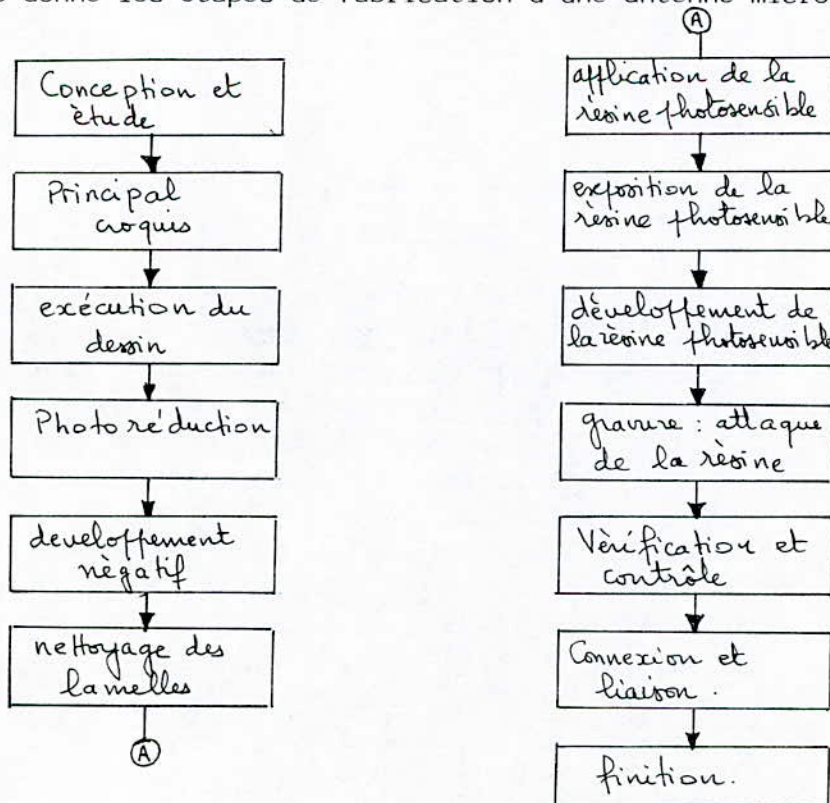 donne les étapes de fabrication d'une antenne micro
Conception et
ètude
Principal
croquis
exécution du
dessin
Photo réduction
developpement
nègatif
nettoyage des
lamelles
A
A
application de la
rèsine photosensible
exposition de la
rèsine photosensible
dèveloppement de
la rèsine photosensible
gravure : attaque
de la rèsine
Vèrification et
contrôle
Connexion et
liaison .
finition.